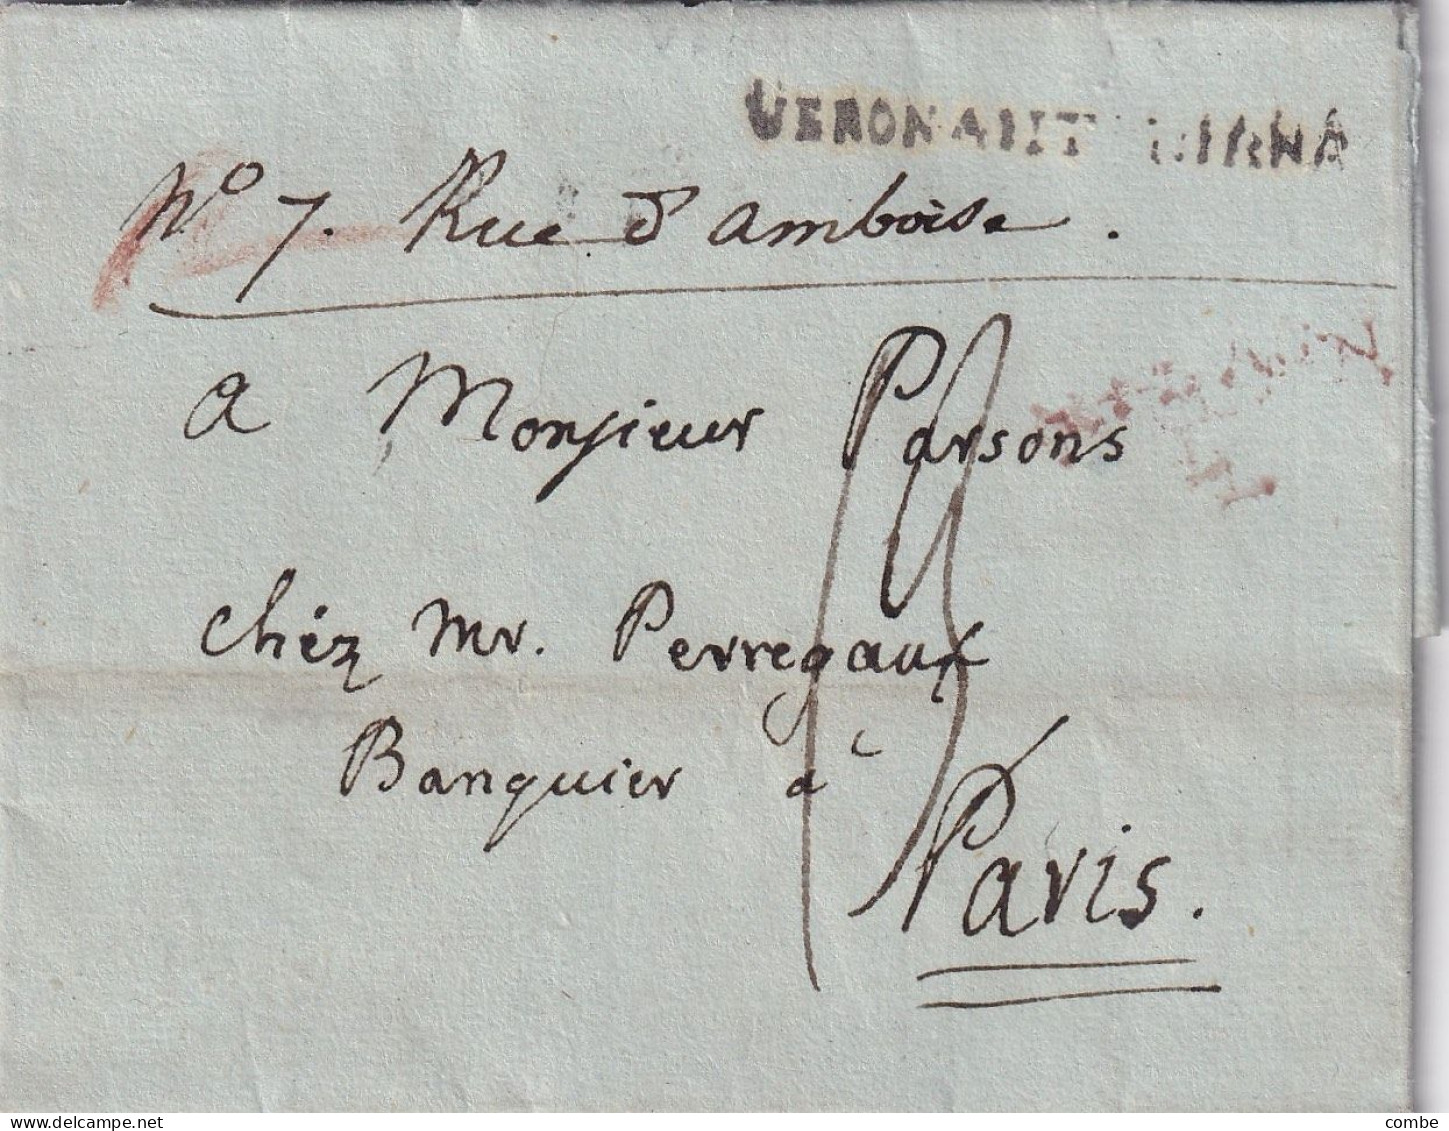 VERONA
No 7. Rue d'amboise.
a Monsieur Parsons
chéz Mr. Perregaux
Banquier à
Paris.
combe